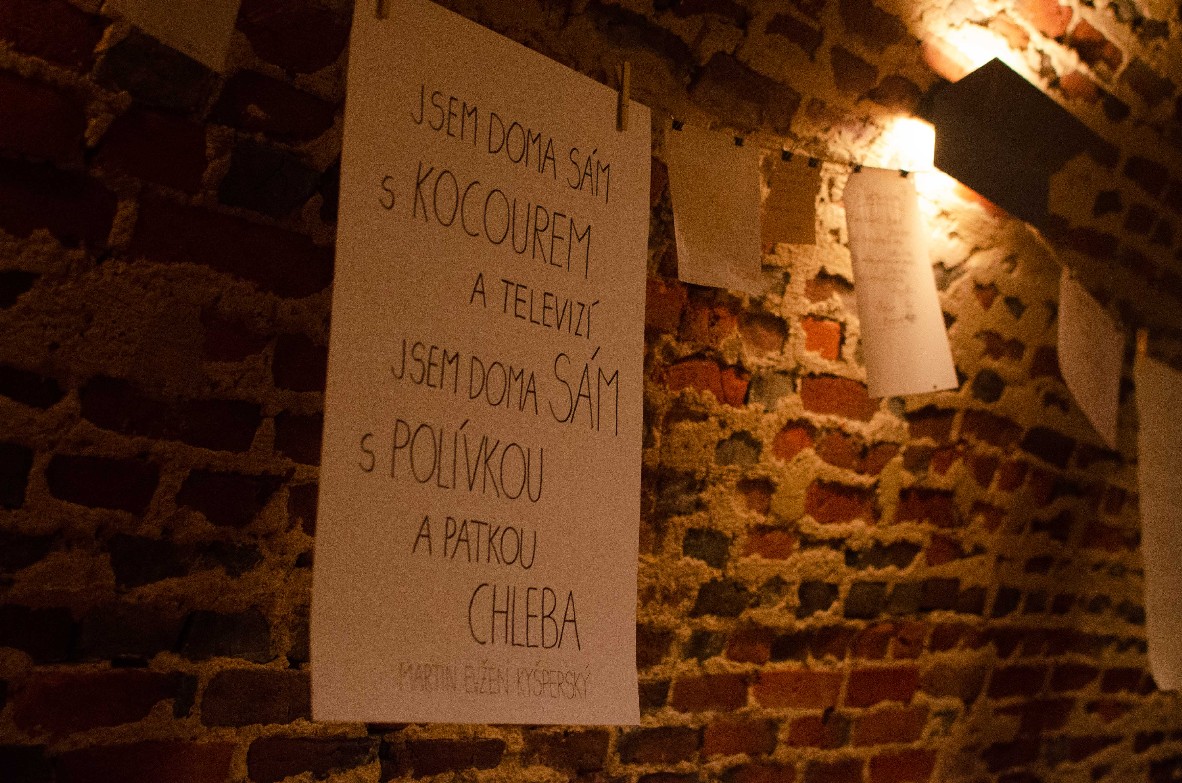 JSEM DOMA SÁM
S KOCOUREM
A TELEVIZÍ
JSEM DOMA SÁM
S POLÍVKOU
A PATKOU
CHLEBA
MARTIN EVŽEN KYŠPERSKÝ